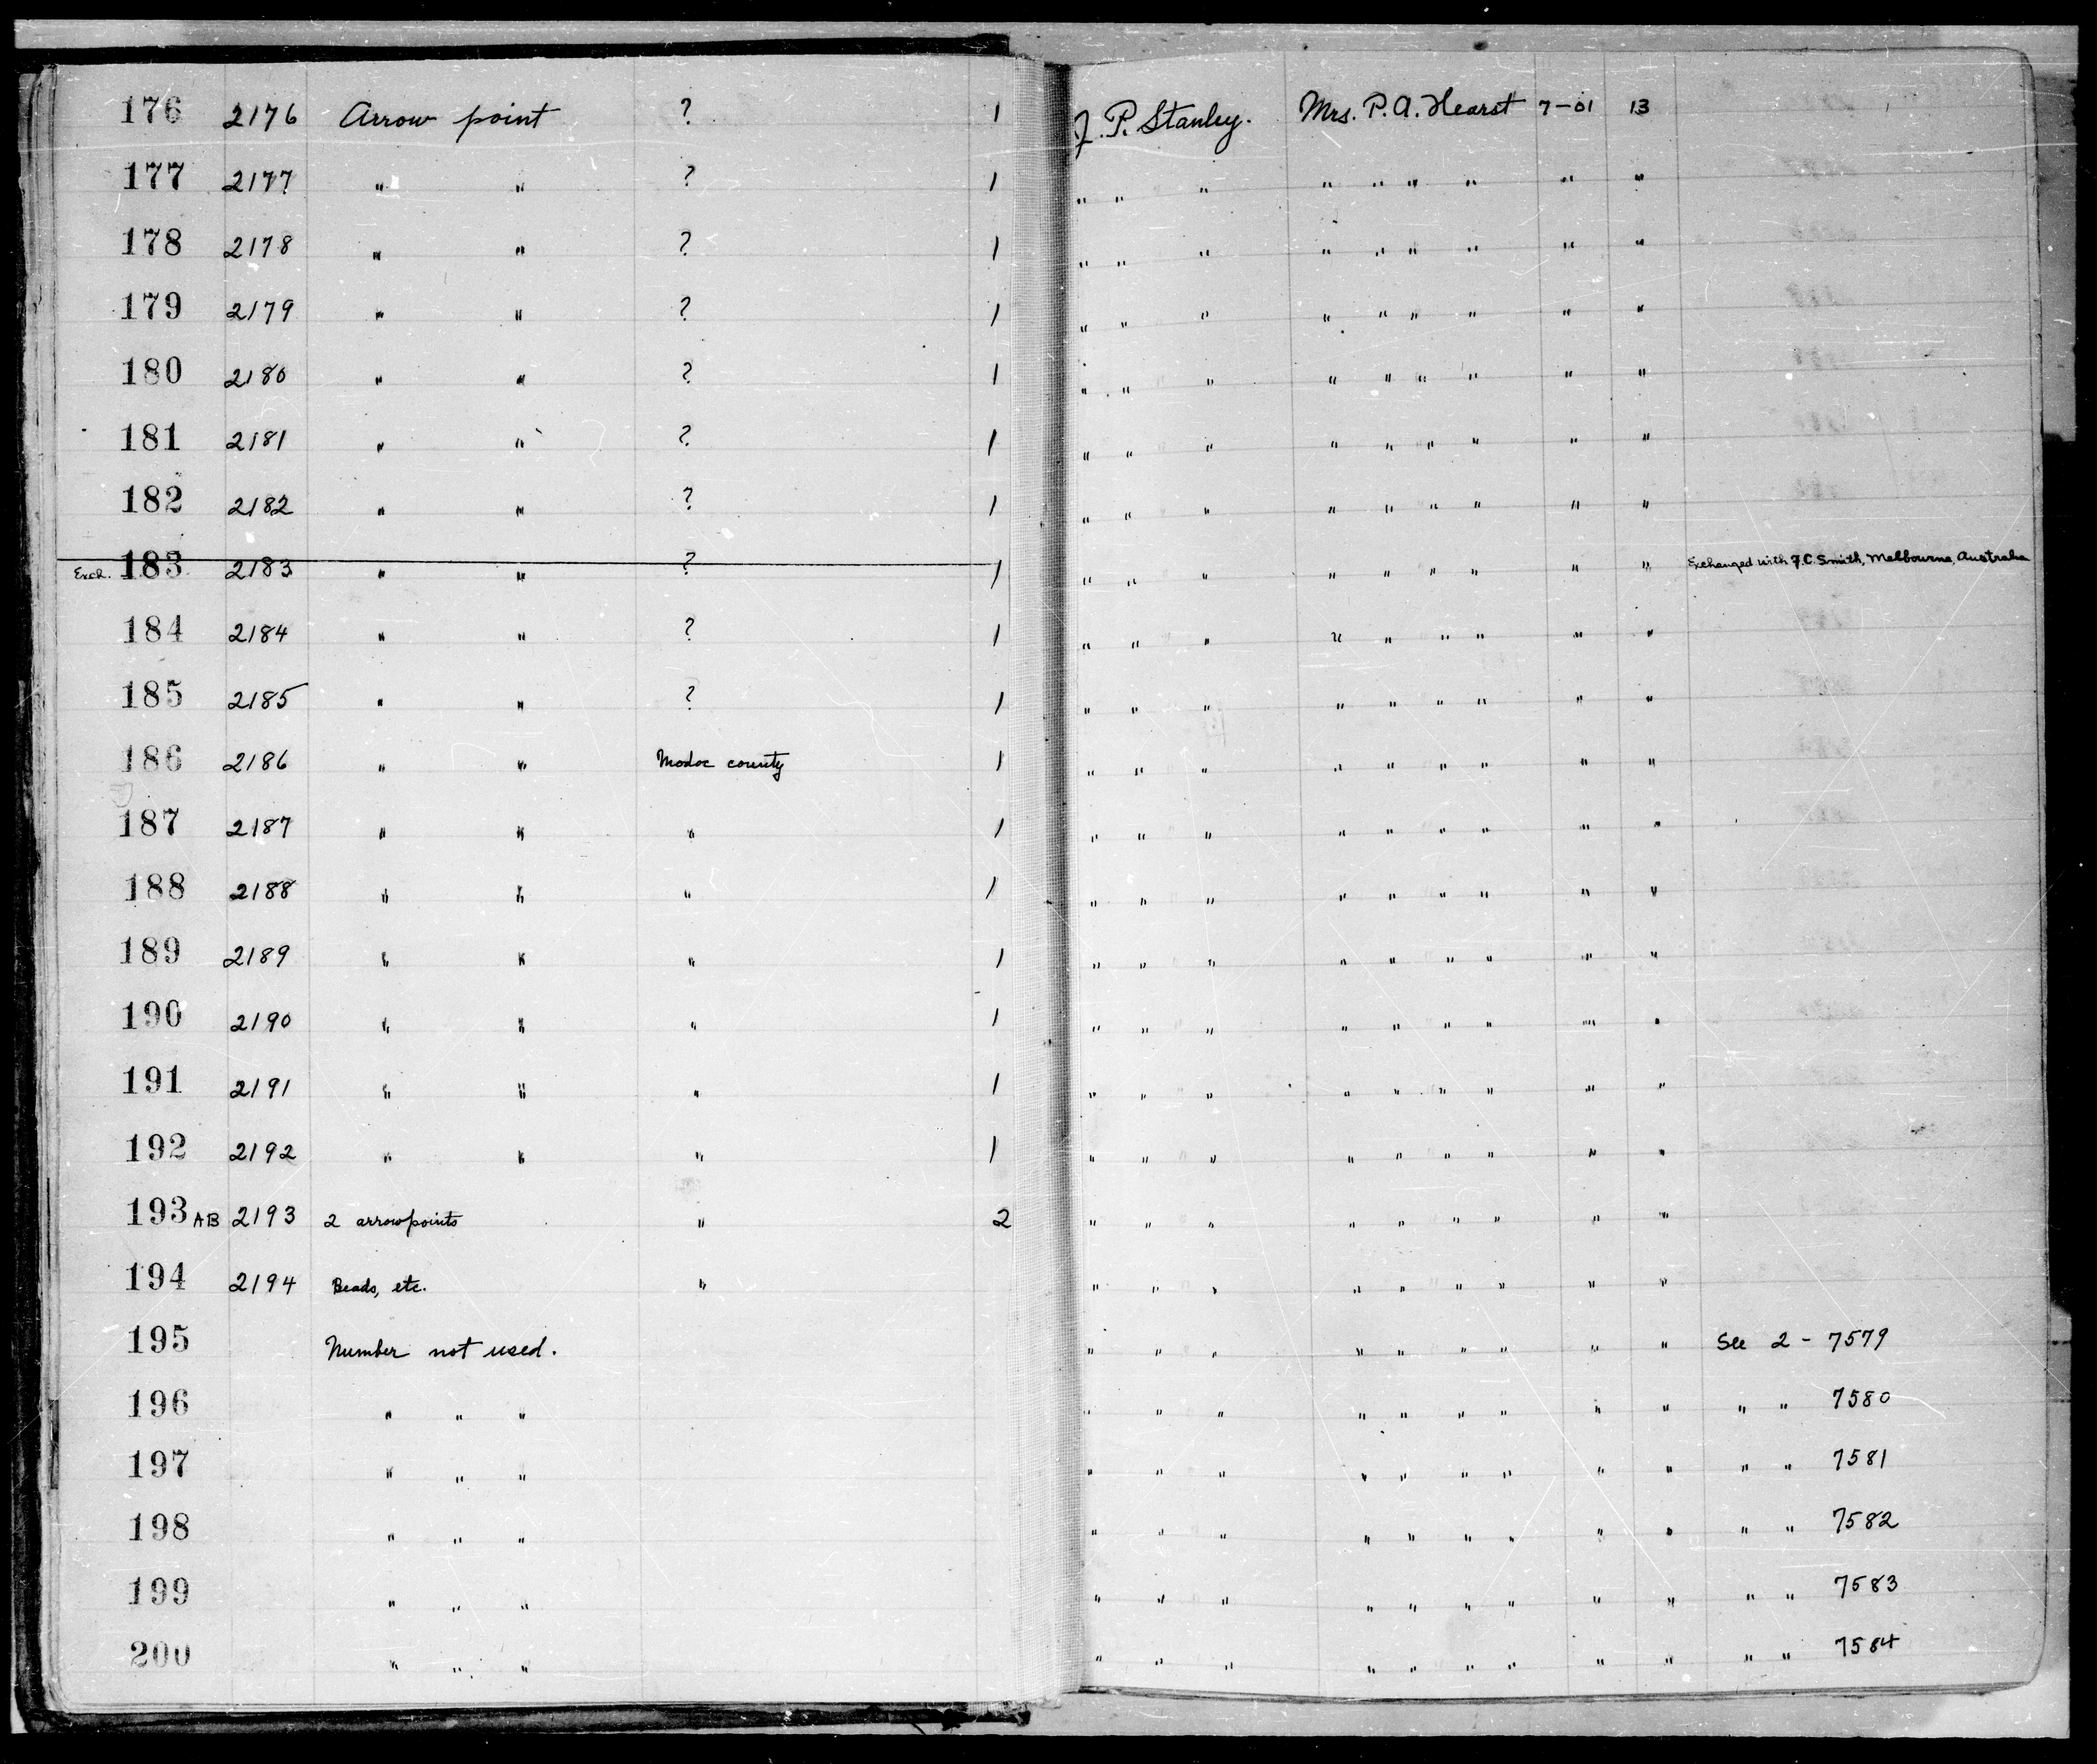 176 2176 Arrow point ? 1 J. P. Stanley. Mrs. P. A. Hearst 7-01 13
177 2177 " " ? 1 " " " " " " " " "
178 2178 " " ? 1 " " " " " " " " "
179 2179 " " ? 1 " " " " " " " " "
180 2180 " " ? 1 " " " " " " " " "
181 2181 " " ? 1 " " " " " " " " "
182 2182 " " ? 1 " " " " " " " " "
Exch. 183 2183 " " ? 1 " " " " " " " " " Exchanged with F. C. Smith, Melbourne, Australia
184 2184 " " ? 1 " " " " " " " " "
185 2185 " " ? 1 " " " " " " " " "
186 2186 " " Modoc county 1 " " " " " " " " "
187 2187 " " " 1 " " " " " " " " "
188 2188 " " " 1 " " " " " " " " "
189 2189 " " " 1 " " " " " " " " "
190 2190 " " " 1 " " " " " " " " "
191 2191 " " " 1 " " " " " " " " "
192 2192 " " " 1 " " " " " " " " "
193 AB 2193 2 arrowpoints " 2 " " " " " " " " "
194 2194 Beads, etc. " " " " " " " " " "
195 Number not used. " " " " " " " " " See 2 - 7579
196 " " " " " " " " " " " " " " 7580
197 " " " " " " " " " " " " " " 7581
198 " " " " " " " " " " " " " " 7582
199 " " " " " " " " " " " " " " 7583
200 " " " " " " " " " " " " " " 7584